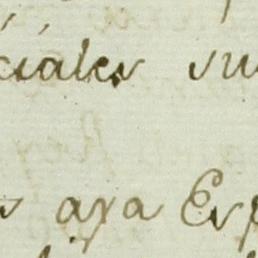 ciales su
aya Esp